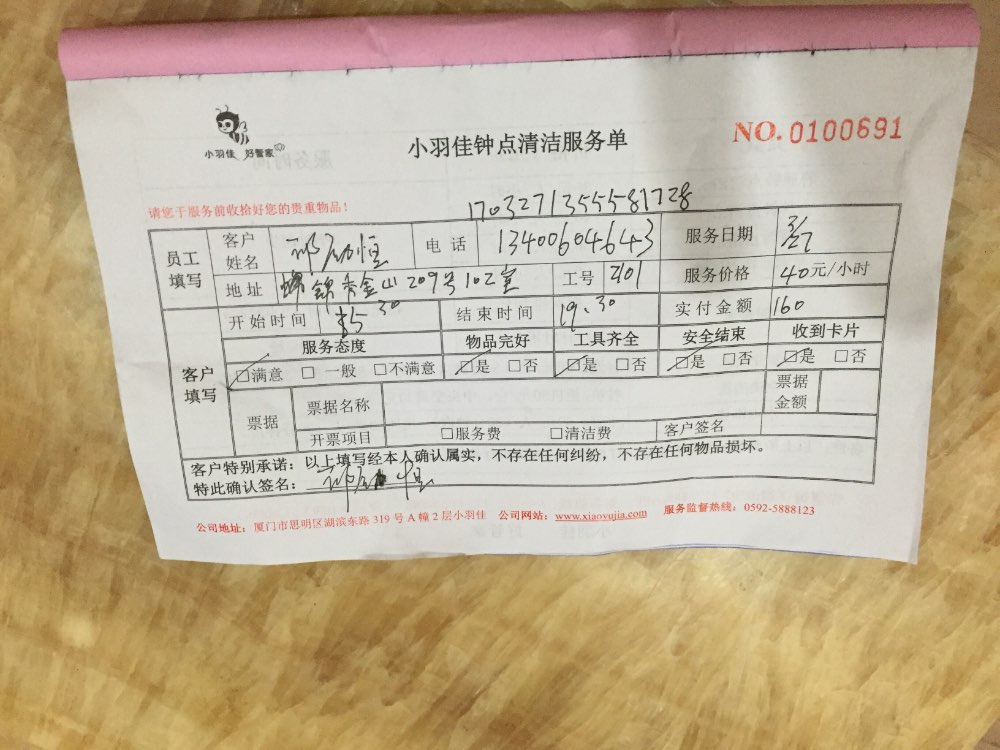 小羽佳 好管家
小羽佳钟点清洁服务单
NO. 0100691
请您于服务前收拾好您的贵重物品!
17032713555581728
员工填写 客户姓名 恒 电话 13400604643 服务日期 3/27
地址 锦秀金山209号102室 工号 2101 服务价格 40元/小时
客户填写 开始时间 15 30 结束时间 19.30 实付金额 160
服务态度 物品完好 工具齐全 安全结束 收到卡片
□满意 □一般 □不满意 □是 □否 □是 □否 □是 □否 □是 □否
票据 票据名称 票据金额
开票项目 □服务费 □清洁费 客户签名
客户特别承诺:以上填写经本人确认属实,不存在任何纠纷,不存在任何物品损坏。
特此确认签名: 恒
公司地址:厦门市思明区湖滨东路 319 号 A 幢 2 层小羽佳 公司网站:www.xiaoyujia.com 服务监督热线:0592-5888123